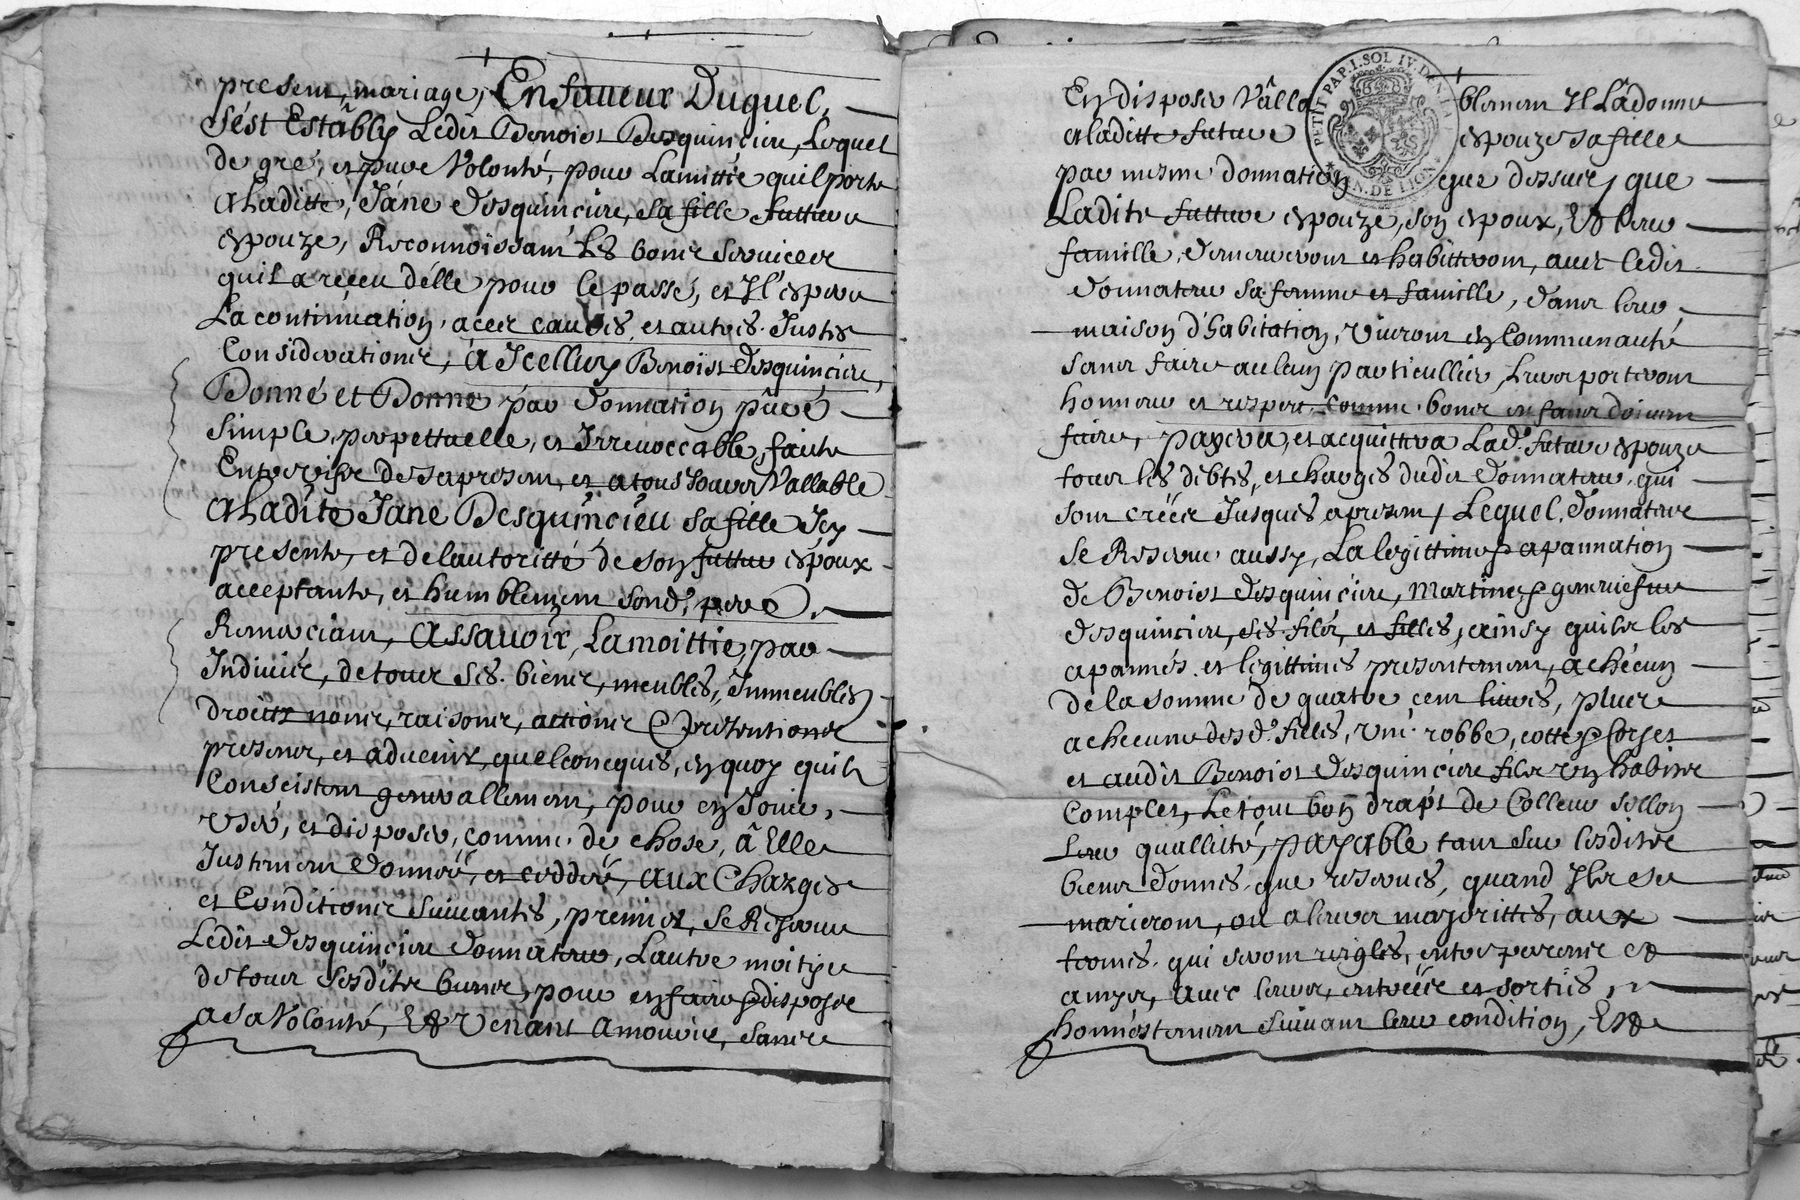 present mariage, En faueur Duquel,
S'est Estâbly Ledit Benoist Desquincieu, Lequel
de gré, et pure Volonté, pour Lamittié quil porte
A Laditte, Jâne desquincieu, sa fille future
espouze, Reconnoissant Les bons seruices
quil a réçeu délle pour le passé, et Il'espere
La continuation, a ces causes, et autres Justes
Considerations, à Icelluy Benoist desquinciéu,
Donné et Donne par donnation pûre
simple, perpettuelle, et Irreuoccable, faitte
Entre vifs des a present, et a tousIours Vallable
A Ladite Jâne Desquinciéu sa fille Icy
presente, et de lautoritté de son futtur espoux
acceptante, et humblement sond.t pere
Remerciant, Assauoir, La moittié par
Indiuis, de tous ses biens, meubles, Immeubles
droits noms, raisons, actions & pretentions
presents, et aduenir, quelconques, en quoy quils
Consistent generallement, pour en Jouir,
vser, et disposer, comme de chose, â Elle
Justement donnée, et ceddée, aux Charges
et Conditions suiuantes, premier, se Reserue
Ledit desquincieu donnateur, Lautre moityé
de tous sesdits biens, pour en faire & disposer
a sa Volonté, Et Venant a mourir, sans
En disposer Vâlla blement Il Lâ donne
a laditte future espouze sa fille
par mesme donnation que dessus, que
Ladite future espouze, son espoux, Et leur
famille, demeureront et habitteront, auec ledit
donnateur sa femme et famille, dans leur
maison d'habitation, viuront en Communauté
sans faire aulcun particullier, Leur porteront
honneur et respect, comme bons enfans doiuent
faire, payera, et acquittera Lad.e future espouze
tous les debtes, et charges dudit donnateur, qui
sont créées Jusques a present, Lequel, donnateur
se Reserue aussy, La legittime & apannation
de Benoist desquincieu, Martine & geneuiefue
desquincieu, ses fils, et filles, ainsy quil les
apannés et legittimes presentement, a châcun
de la somme de quatre cent liures, plus
a checune desd.s filles, vne robbe, cotte & Corset
et audit Benoist desquincieu fils vn habits
Complet, Letout bon drapt de Colleur sellon
Leur quallité, payable tant sur lesdits
biens donnés, que reserués, quand Ils se
marieront, ou a leurs majorittés, aux
termes qui seront reiglés, entre parents et
amys, auec leurs, entrées et sorties,
honnéstement suiuant leur condition, Et
PETIT PAP. I. SOL IV. DEN. LA F.
GEN. DE LION